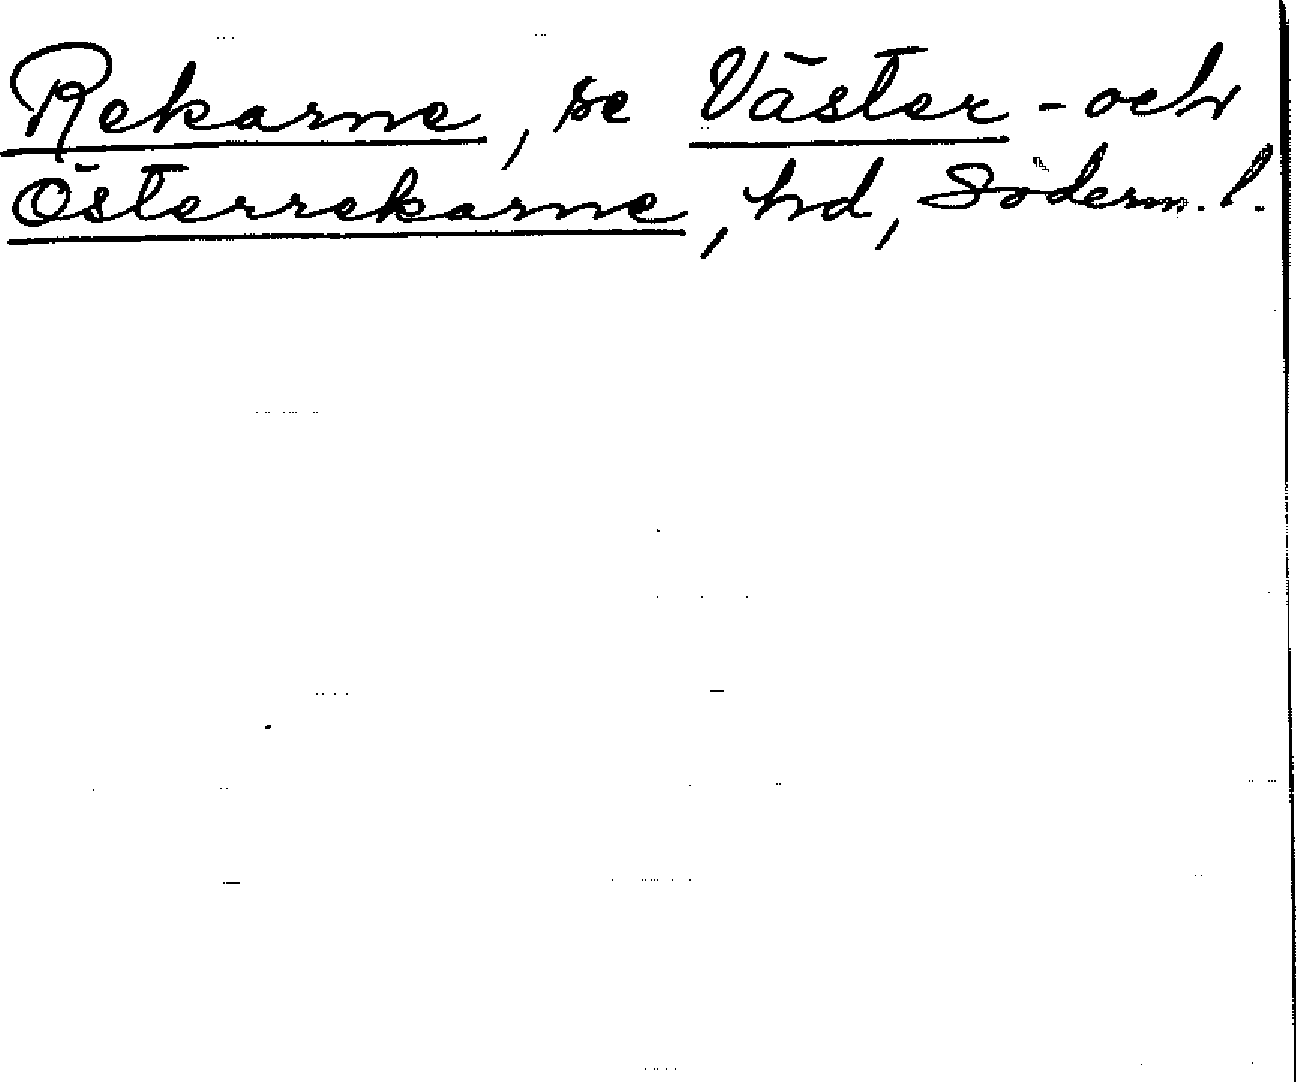 Rekarne, se Väster- och
Österrekarne, hd, Söderm. l.